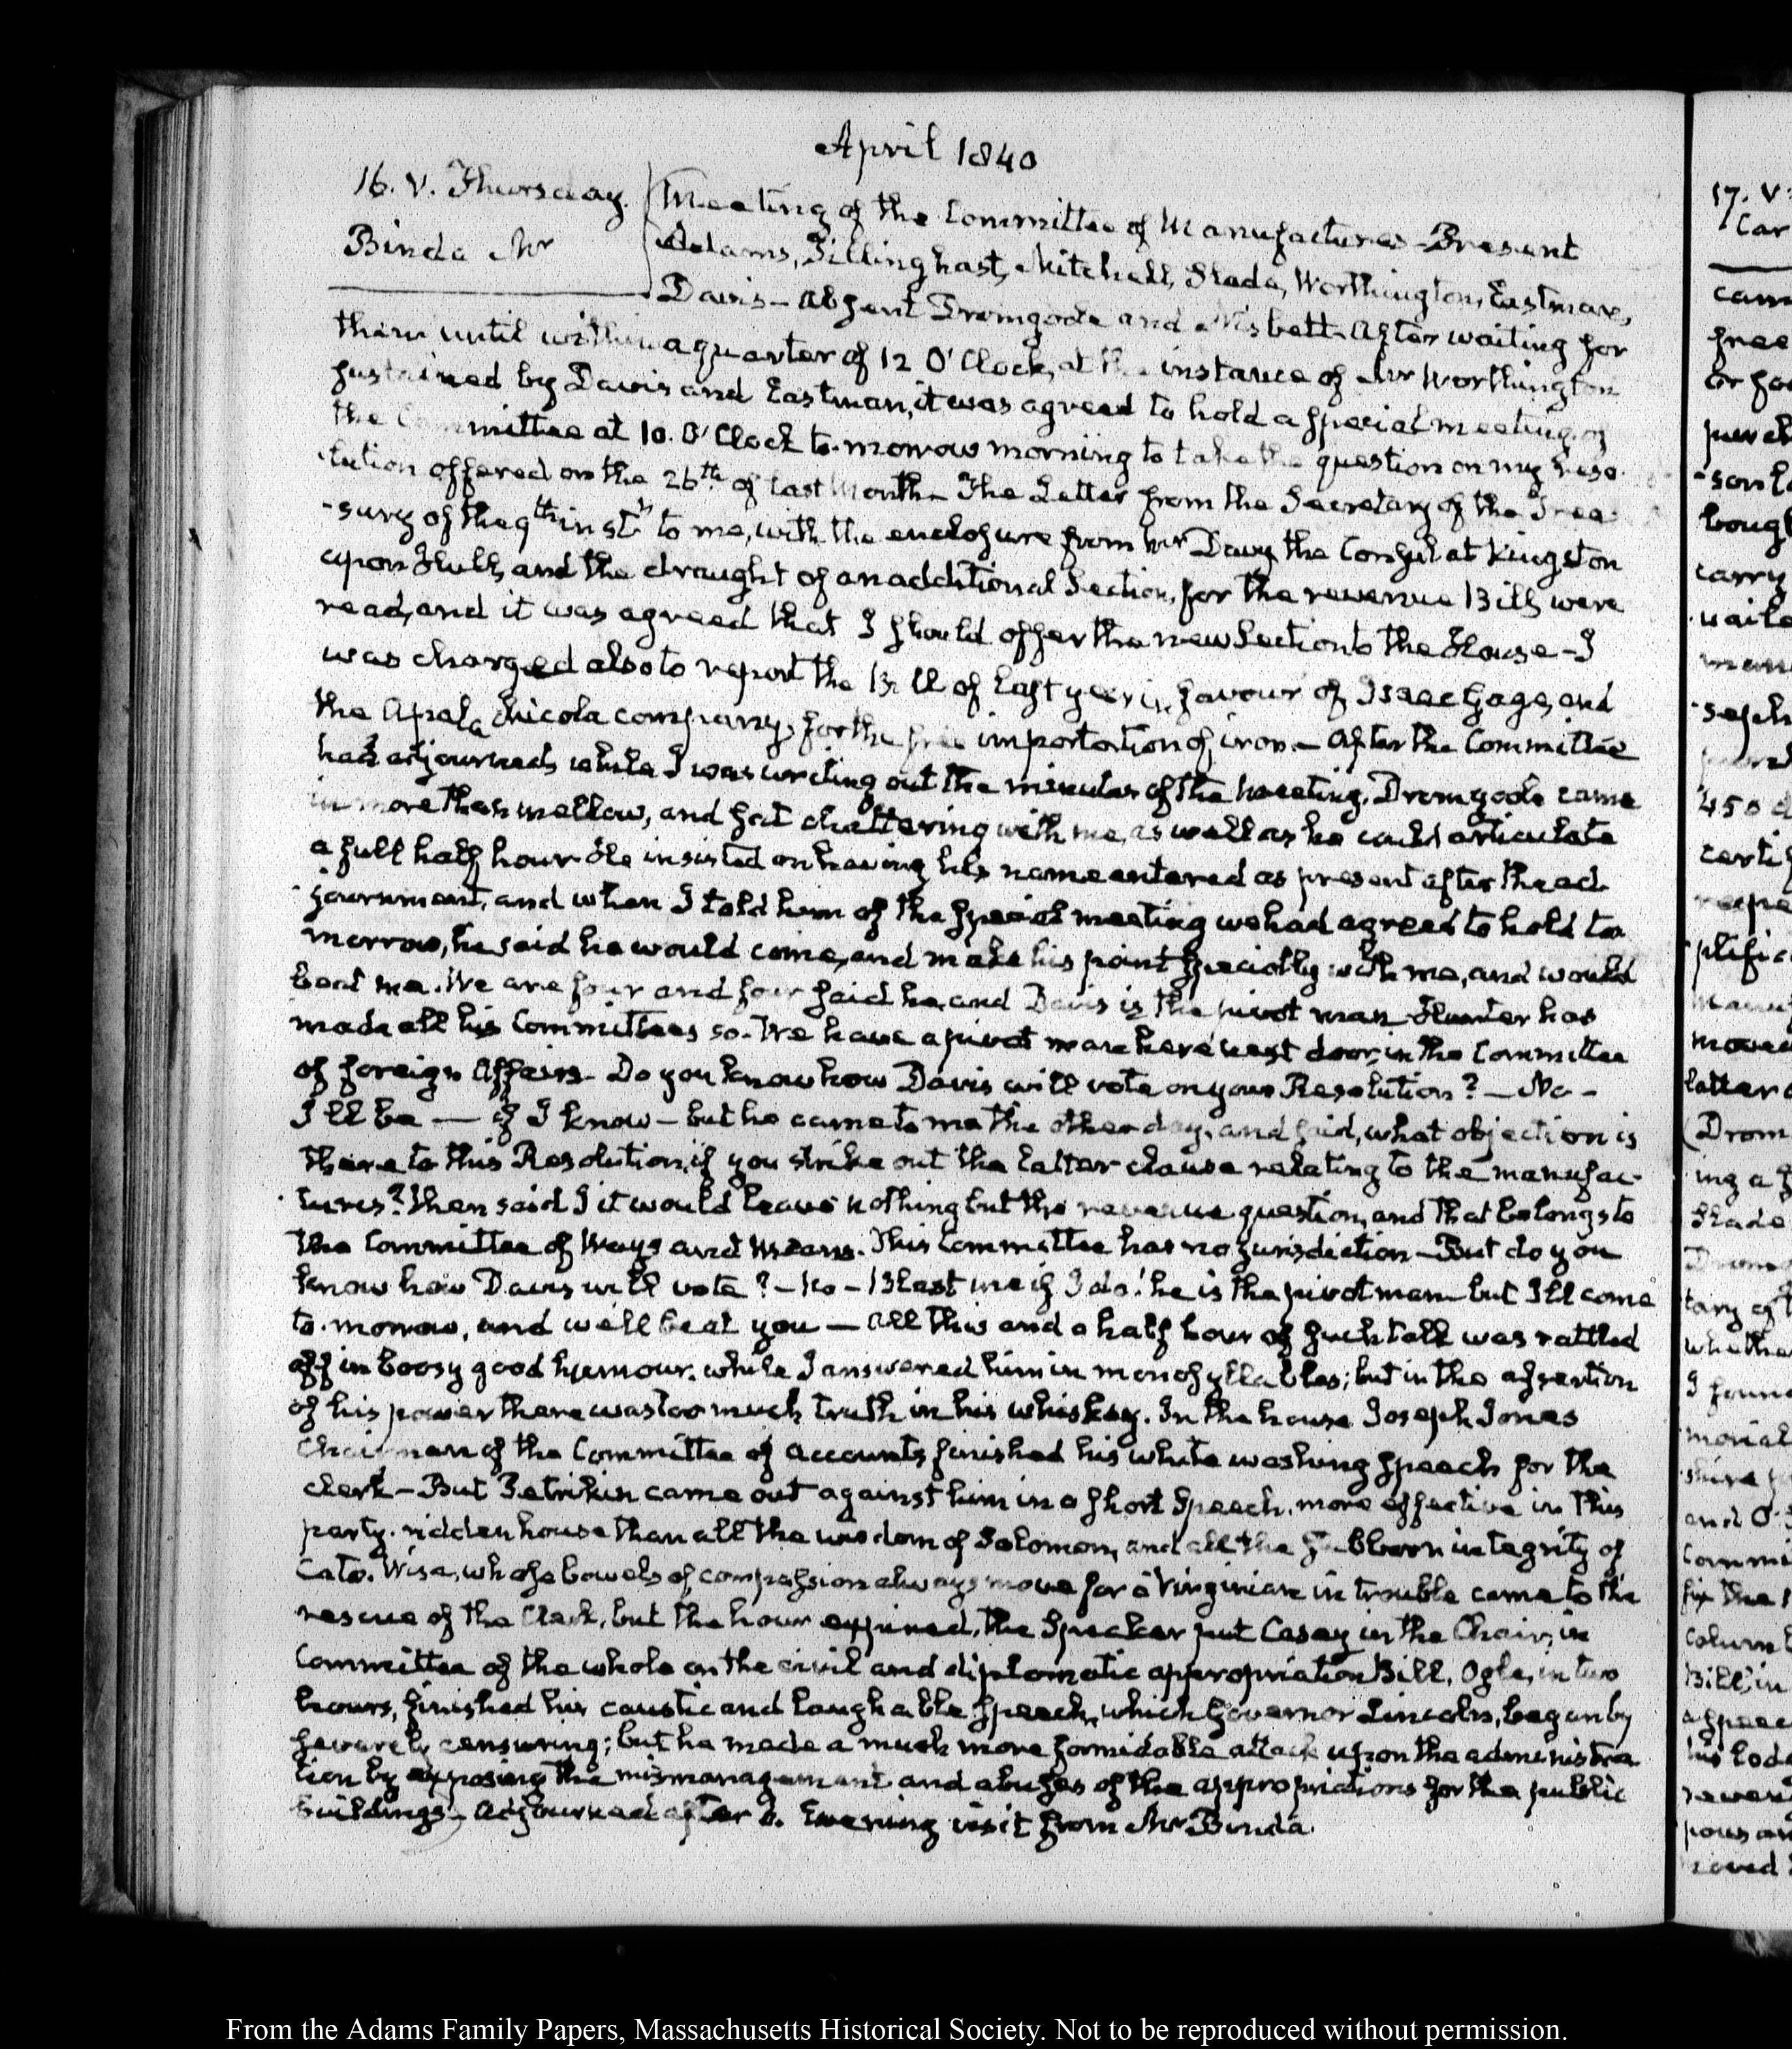 April 1840
16. V. Thursday. Meeting of the Committee of Manufactures - Present
Binda Mr Adams, Tillinghast, Mitchell, Slade, Worthington, Eastman,
Davis - absent Dromgoole and Nisbett. After waiting for
them until within a quarter of 12 O'Clock, at the instance of Mr Worthington
sustained by Davis and Eastman, it was agreed to hold a special meeting of
the Committee at 10. O'Clock to-morrow morning to take the question on my reso-
-lution offered on the 26th of last Month - The Letter from the Secretary of the Trea-
-sury of the 9th instt to me, with the enclosure from Mr Davy the Consul at Kingston
upon Hull, and the draught of an additional Section, for the revenue Bill, were
read, and it was agreed that I should offer the new Section to the House - I
was charged also to report the Bill of last year in favour of Isaac Gage, and
the Apalachicola company, for the free importation of iron. - After the Committee
had adjourned, while I was writing out the minutes of the meeting, Dromgoole came
in more than mellow, and sat chattering with me, as well as he could articulate
a full half hour. He insisted on having his name entered as present after the ad-
-journment, and when I told him of the special meeting we had agreed to hold to-
morrow, he said he would come, and make his point specially with me, and would
beat me. We are four and four said he, and Davis is the pivot man Hunter has
made all his Committees so. We have a pivot man here next door, in the Committee
of foreign Affairs - Do you know how Davis will vote on your Resolution? - No -
I'll be — if I know - but he came to me the other day, and said, what objection is
there to this Resolution, if you strike out the latter clause relating to the manufac-
-tures? then said I it would leave nothing but the revenue question, and that belongs to
the Committee of Ways and Means. This Committee has no jurisdiction - But do you
know how Davis will vote? - No - Blast me if I do! he is the pivot man but I'll come
to-morrow, and we'll beat you - All this and a half hour of such talk was rattled
off in boosy good humour, while I answered him in monosyllables; but in the assertion
of his power there was too much truth in his whiskey. In the house Joseph Jones
Chairman of the Committee of accounts finished his white washing speech for the
clerk - But Petrikin came out against him in a short Speech, more effective in this
party-ridden house than all the wisdom of Solomon, and all the stubborn integrity of
Cato. Wise, whose bowels of compassion always move for a Virginian in trouble came to the
rescue of the Clerk, but the hour expired, the Speaker put Casey in the Chair, in
Committee of the whole on the civil and diplomatic appropriation Bill. Ogle, in two
hours, finished his caustic and laughable speech, which Governor Lincoln, began by
severely censuring; but he made a much more formidable attack upon the administra-
tion by exposing the mismanagement and abuses of the appropriations for the public
buildings - Adjourned after Evening visit from Mr Binda.
17. V
Car
cam
free
or
carry
-son
bough
450
certif
plific
latter
(Drom
ing a
Slade
whethe
I foun
morial
shire
and
Commi
fix the
colum
Bill, in
From the Adams Family Papers, Massachusetts Historical Society. Not to be reproduced without permission.